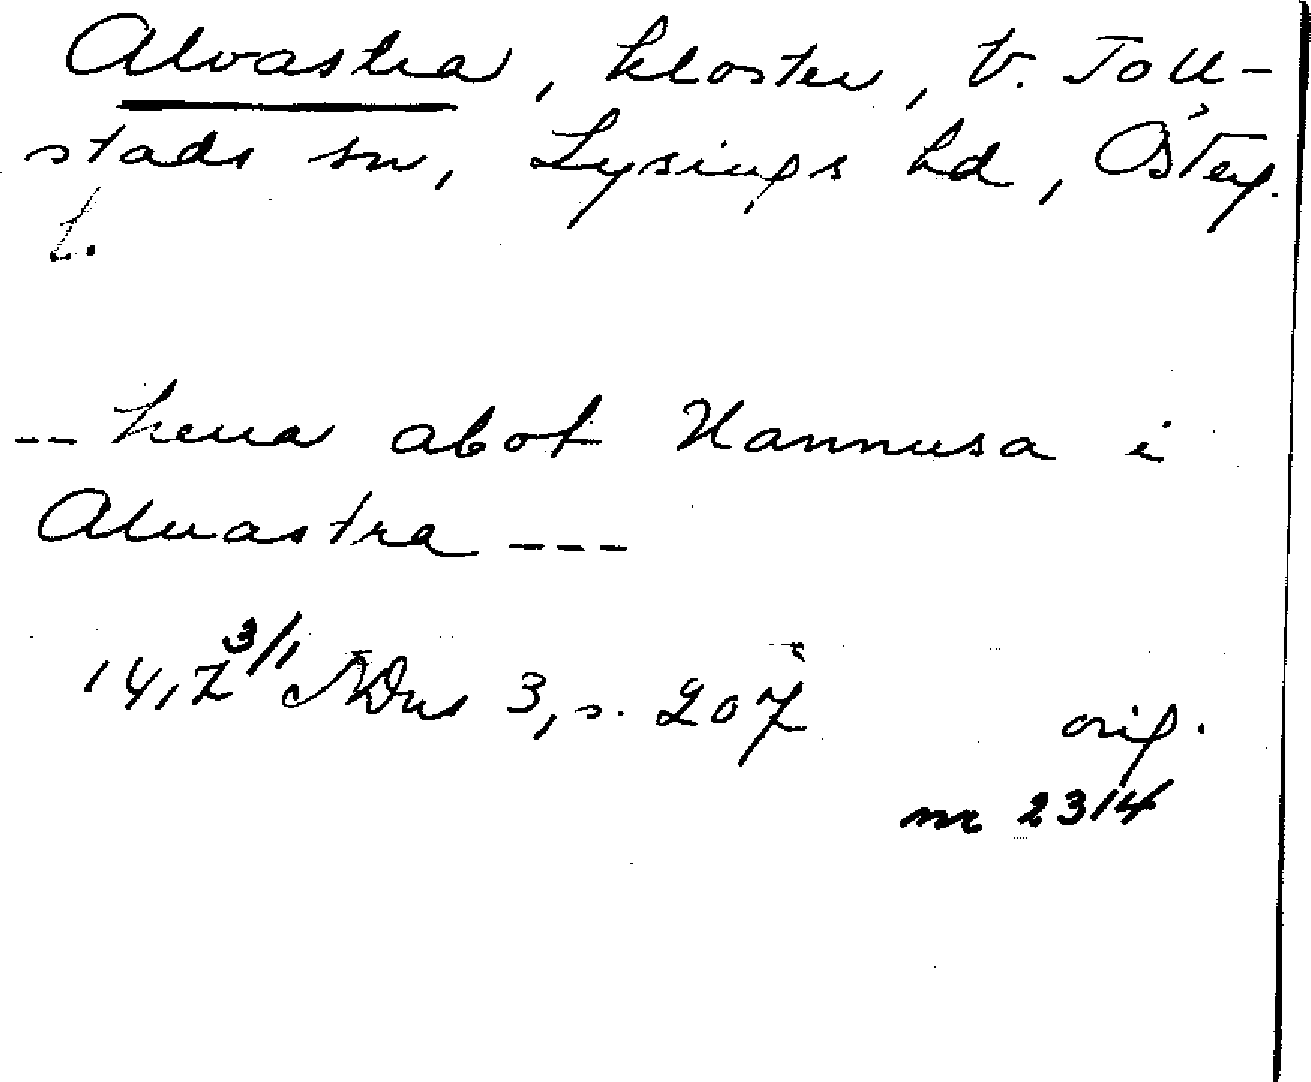 Alvastra, kloster, V. Toll-
stads sn, Lysings hd, Österg.
l.
-- herra abot Hannusa i
Aluastra ---
14,7 3/1 SDns 3, s. 207 orig.
nr 2314